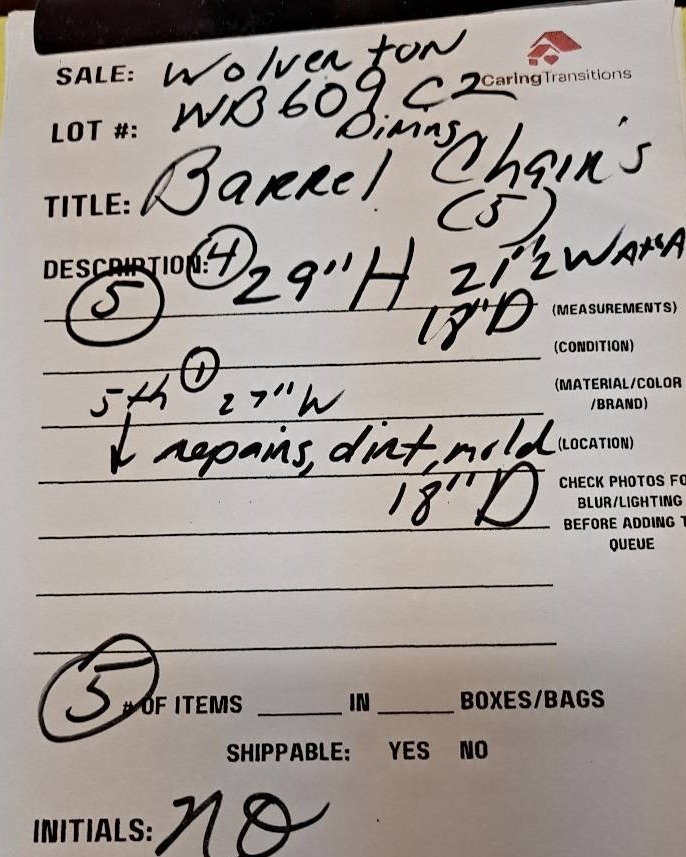 SALE: Wolverton
CaringTransitions
LOT #: WB609 C2
Dining
TITLE: Barrel Chair's
(5)
DESCRIPTION: 4 29"H 21"2 W
5 18"D (MEASUREMENTS)
(CONDITION)
5th 1 27"W (MATERIAL/COLOR
/BRAND)
↓ repairs, dirt, mold (LOCATION)
18"D CHECK PHOTOS FO
BLUR/LIGHTING
BEFORE ADDING T
QUEUE
5 # OF ITEMS ______ IN ______ BOXES/BAGS
SHIPPABLE: YES NO
INITIALS: NO